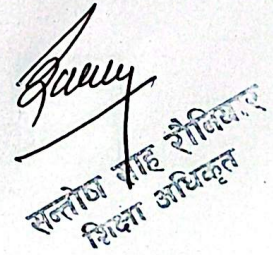 सन्तोष साह रौनियार
शिक्षा अधिकृत